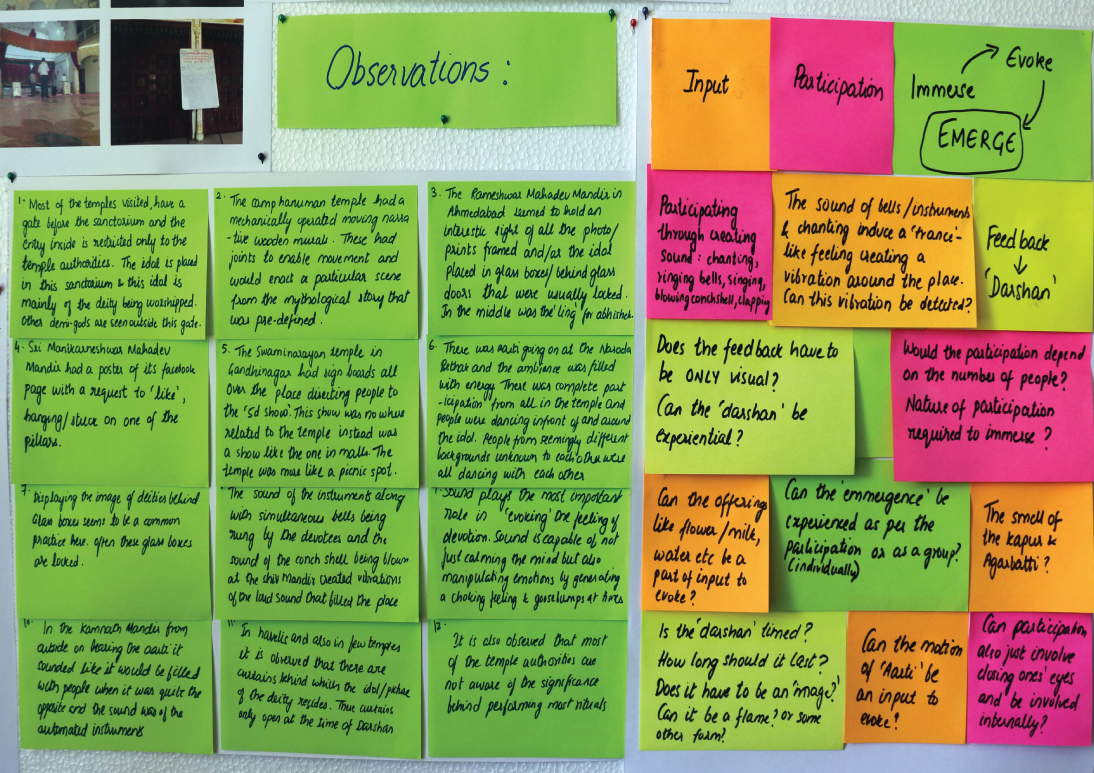 Observations :
1. Most of the temples visited, have a
gate before the sanctorium and the
entry inside is restricted only to the
temple authorities. The idol is placed
in this sanctorium & this idol is
mainly of the deity being worshipped.
Other demi-gods are seen outside this gate.
2. The camp hanuman temple had a
mechanically operated moving narra
-tive wooden murals. These had
joints to enable movement and
would enact a particular scene
from the mythological story that
was pre-defined.
3. The Rameshwar Mahadev Mandir in
Ahmedabad seemed to hold an
interestic sight of all the photo/
prints framed and/as the idol
placed in glass boxes/behind glass
doors that were usually locked.
In the middle was the 'ling' for abhishek.
4. Sri Manikarneshwar Mahadev
Mandir had a poster of its facebook
page with a request to 'like',
hanging/stuck on one of the
pillars.
5. The Swaminarayan temple in
Gandhinagar had sign boards all
over the place directing people to
the '5d show'. This show was no where
related to the temple instead was
a show like the one in malls. The
temple was more like a picnic spot.
6. There was aarti going on at the Naroda
Bethak and the ambience was filled
with energy. There was complete part
-icipation from all in the temple and
people were dancing infront of and around
the idol. People from seemingly different
backgrounds unknown to each other were
all dancing with each other
7. Displaying the image of deities behind
glass boxes seems to be a common
practice here. often these glass boxes
are locked.
The sound of the instruments along
with simultaneous bells being
rung by the devotees and the
sound of the conch shell being blown
at the shiv Mandir created vibrations
of the loud sound that filled the place
Sound plays the most important
role in 'evoking' the feeling of
devotion. Sound is capable of, not
just calming the mind but also
manipulating emotions by generating
a choking feeling & goosebumps at times
10. In the Kamnath Mandir from
outside on hearing the aarti it
sounded like it would be filled
with people when it was quite the
opposite and the sound was of the
automated instruments
11. In havelis and also in few temples
it is observed that there are
curtains behind which the idol/picture
of the deity resides. These curtains
only open at the time of Darshan
12. It is also observed that most
of the temple authorities are
not aware of the significance
behind performing most rituals
Input
Participation
Immerse
Evoke
EMERGE
Participating
through creating
sound : chanting,
ringing bells, singing,
blowing conchshell, clapping
The sound of bells/instruments
& chanting induce a 'trance'-
like feeling creating a
vibration around the place.
Can this vibration be detected?
Feedback
↓
'Darshan'
Does the feedback have to
be ONLY visual?
Can the 'darshan' be
experiential?
Would the participation depend
on the number of people?
Nature of participation
required to immerse?
Can the offerings
like flower/milk,
water etc be a
part of input to
evoke?
Can the 'emmergence' be
experienced as per the
participation or as a group?
(individually)
The smell of
the kapur &
Agarbatti?
Is the 'darshan' timed?
How long should it last?
Does it have to be an 'image'?
Can it be a flame? or some
other form?
Can the motion
of 'Aarti' be
an input to
evoke?
Can participation
also just involve
closing ones' eyes
and be involved
internally?